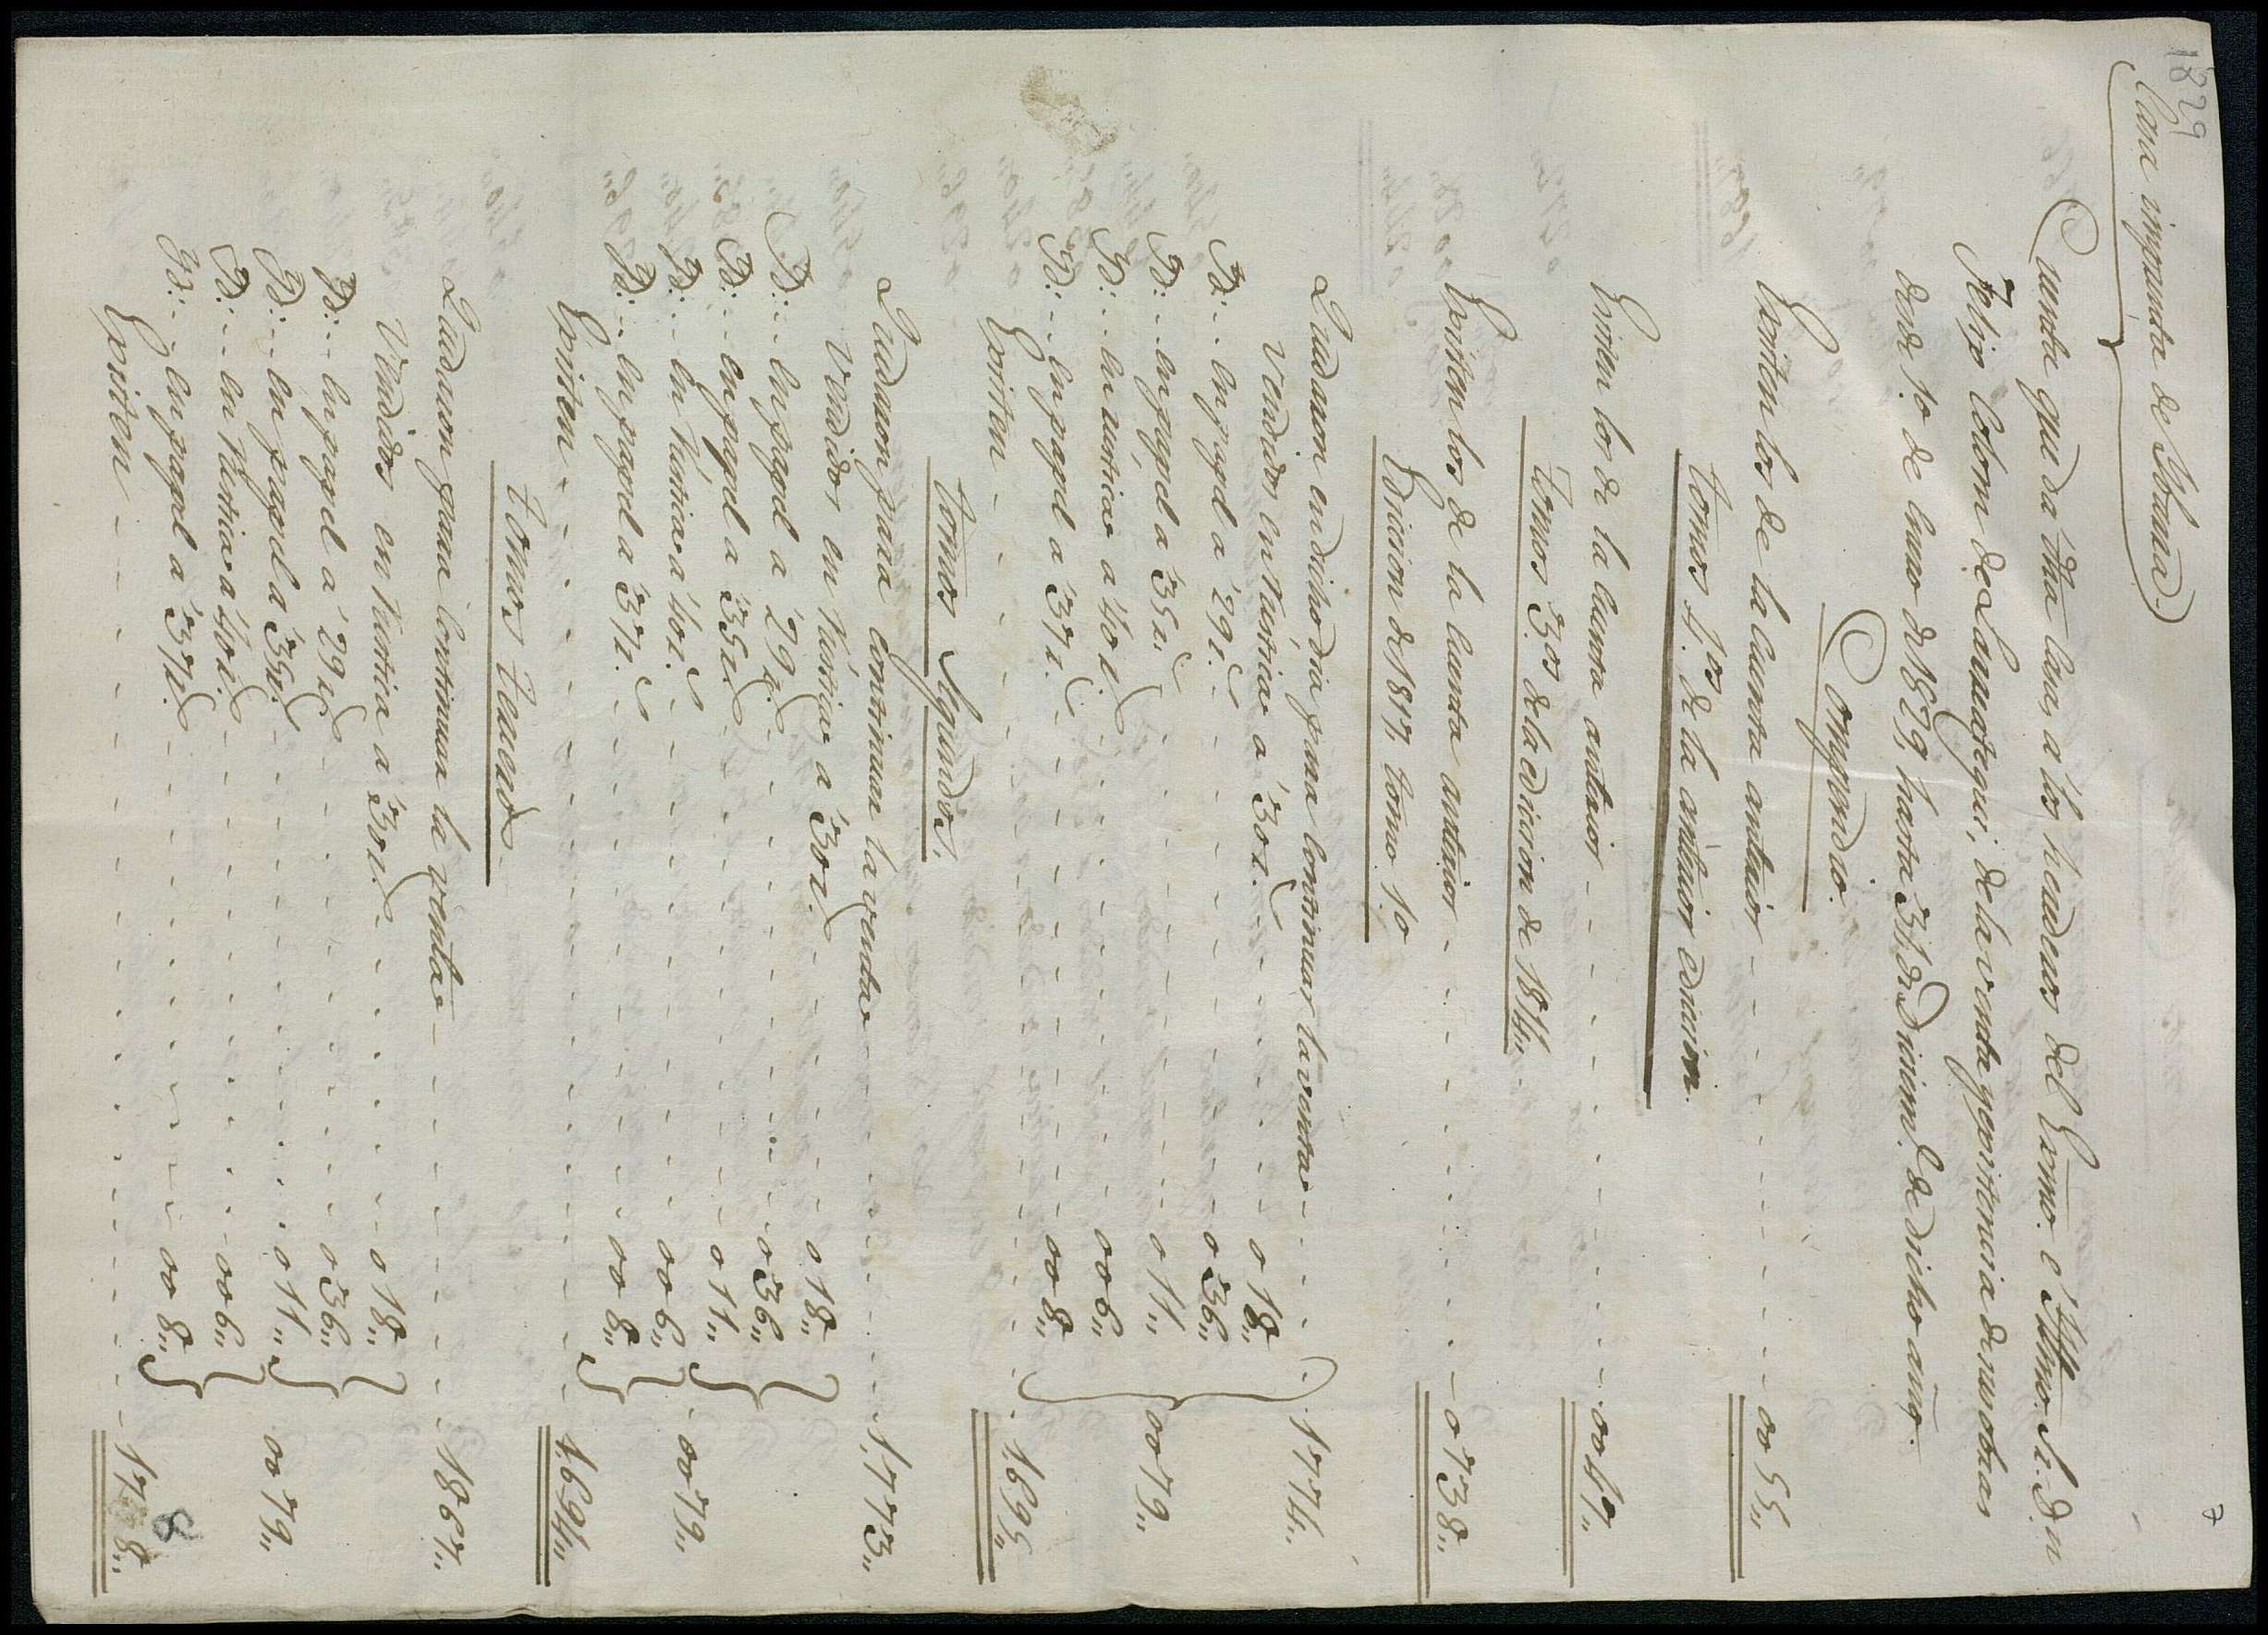 1829
7
Casa imprenta de Ibarra.
Cuenta que da dha casa, a los herederos del Exmo. e Illmo. Sr. D. n
Felix Colon de Larreategui, de la venta y existencia de sus obras
desde 1.o de Enero de 1829, hasta 31 de Diciem.e de dicho año.
Compendio.
Existen los de la cuenta anterior - - - - - 0055,,
Tomos 4.os de la anterior edicion
Existen los de la cuenta anterior - - - - - 0047,,
Tomos 3.os de la edicion de 1814,,
Existen los de la cuenta anterior - - - - - 0738,,
Edicion de 1817. tomo 1.o
Quedaron en dicho dia para continuar la venta - - - 1774,,
Vendidos en rustica a 30 r.s - - - 018,,
Yd: - - en papel a 29 r.s - - - 036,,
Yd: - - en papel a 35 r.s - - - 011,,
Yd: - - en rustica a 40 r.s - - - 006,,
Yd: - - en papel a 37 r.s - - - 008,,
0079,,
Existen - - - - - 1695,,
Tomos Segundos.
Quedaron para continuar la venta - - - 1,773,,
Vendidos en rustica a 30 r.s - - - 018,,
Yd: - - en papel a 29 r.s - - - 036,,
Yd: - - en papel a 35 r.s - - - 011,,
Yd: - - en rustica a 40 r.s - - - 006,,
Yd: - - en papel a 37 r.s - - - 008,,
0079,,
Existen - - - - - 1.694,,
Tomos terceros
Quedaron para continuar la venta - - - 1867,,
Vendidos en rustica a 30 r.s - - - 018,,
Yd: - - en papel a 29 r.s - - - 036,,
Yd: - - en papel a 35 r.s - - - 011,,
Yd: - - en rustica a 40 r.s - - - 006,,
Yd: - - en papel a 37 r.s - - - 008,,
0079,,
8
Existen - - - - - 17 8,,